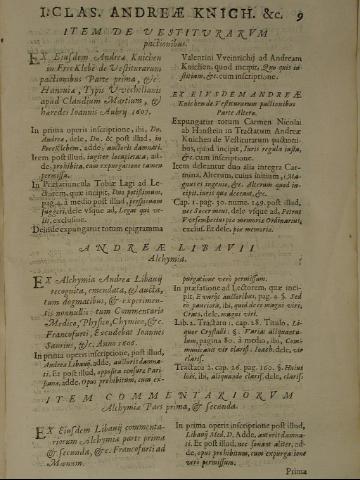 I. CLAS. ANDREÆ KNICH. &c. 9
ITEM DE VESTITURARVM
pactionibus.
EX Eiusdem Andreæ Knichen
pactionibus Parte prima, &c.
Hanoviæ, Typis Wechelianis
apud Claudium Marnium, &
haredes Ioannis Aubry 1607.
In prima operis inscriptione, ibi, Do.
Andrea, dele, Do. & post illud, in
adde, auctoris damnati.
Item post illud,
de, prohibita, cum expurgatione tamen
permissa.
In Præfatiuncula Tobiæ Lagi ad Le-
ctorem, quæ incipit,
pag. 4. à medio post illud,
dele vsque ad, Legat qui ve-
lit, exclusiue.
Deinde expungatur totum epigramma
Valentini ad Andream
Knichen, quod incipit, Quo quis
cum inscriptione.
ET EIVSDEM ANDREÆ
Knichen de Vestiturarum pactionibus
Parte Altera.
Expungatur totum Carmen Nicolai
ab Hanstein in Tractatum Andreæ
Knichen de Vestiturarum pactioni-
bus, quod incipit, Iuris regula
&c. cum inscriptione.
Item deleantur duo alia integra Car-
mina, Alterum, cuius initium,
&c. Alterum quod in-
cipit, iuris &c.
Cap. 1. pag. 30. num. 149. post illud,
nec decernunt, dele vsque ad, Petrus
Vvesembecius pia memoria Ordinarius,
exclus. Et dele, pia memoria.
ANDREÆ LIBAVII
Alchymia.
EX Alchymia Andreæ Libauij
recognita, emendata, & aucta,
tum dogmatibus, & experimen-
tis nonnullis: tum Commentario
Medico, Physico, Chymico, &c.
Francofurti, Excudebat Ioannes
Saurius, &c. Anno 1606.
In prima operis inscriptione, post illud,
Andreæ Libauij, adde, auctoris damna-
ti. Et post illud, opposita censura Pari-
siana, adde, Opus prohibitum, cum ex-
purgatione verò permissum.
In præfatione ad Lectorem, quæ inci-
pit, E variis auctoribus, pag. 2. §. Sed
dele, magni viri.
Lib. 2. Tractatu 1. cap. 28. Titulo, Li-
quor Crystalli: §. Varia aliquanto-
lum, pagina 80. à medio, ibi, Com-
municauit vir clariss. Ioach. dele, vir
clariss.
Tractatu 2. cap. 26. pag. 160. §. Huius
loci, ibi, aliquando clariss. dele, clariss.
ITEM COMMENTARIORVM
Alchymiæ Pars prima, & secunda.
EX Eiusdem Libauij commenta-
riorum Alchymiæ parte prima
& secunda, &c. Francofurti ad
Mœnum.
In prima operis inscriptione post illud,
Libauij Med. D. Adde, auctoris damna-
ti. Et post illud, nec sonant aliter, ad-
de, opus prohibitum, cum expurgatione
verò permissum.
Prima